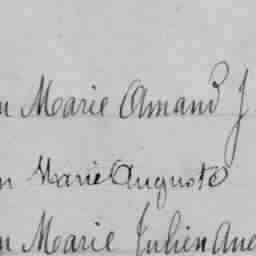 Marie Amand J
Marie Auguste
Marie Julien Aug